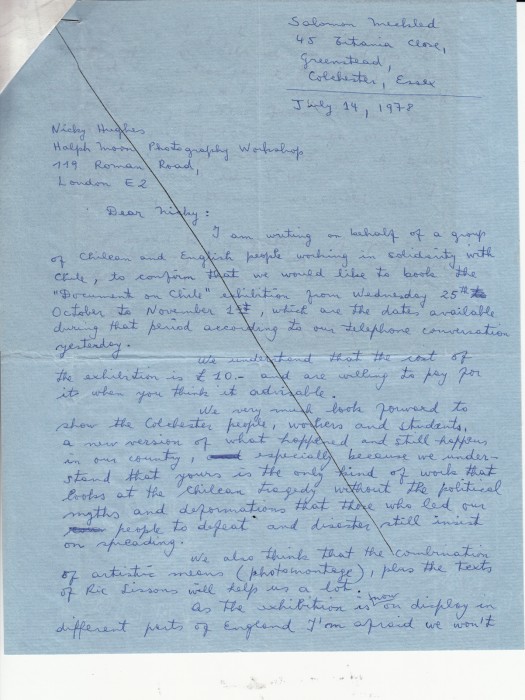 Salomon Meckled
45 Titania Close,
Greenstead,
Colchester, Essex
July 14, 1978
Nicky Hughes
Halph Moon Photography Workshop
119 Roman Road,
London E2
Dear Nicky:
I am writing on behalf of a group
of Chilean and English people working in solidarity with
Chile, to confirm that we would like to book the
"Document on Chile" exhibition from Wednesday 25th
October to November 1st, which are the dates available
during that period according to our telephone conversation
yesterday.
We understand that the cost of
the exhibition is £ 10.- and are willing to pay for
it when you think it advisable.
We very much look forward to
show the Colchester people, workers and students,
a new version of what happened and still happens
in our country, especially because we under-
stand that yours is the only kind of work that
looks at the Chilean tragedy without the political
myths and deformations that those who led our
people to defeat and disaster still insist
on spreading.
We also think that the combination
of artistic means (photomontage), plus the texts
of Ric Sissons will help us a lot.
As the exhibition is now on display in
different parts of England I'm afraid we won't